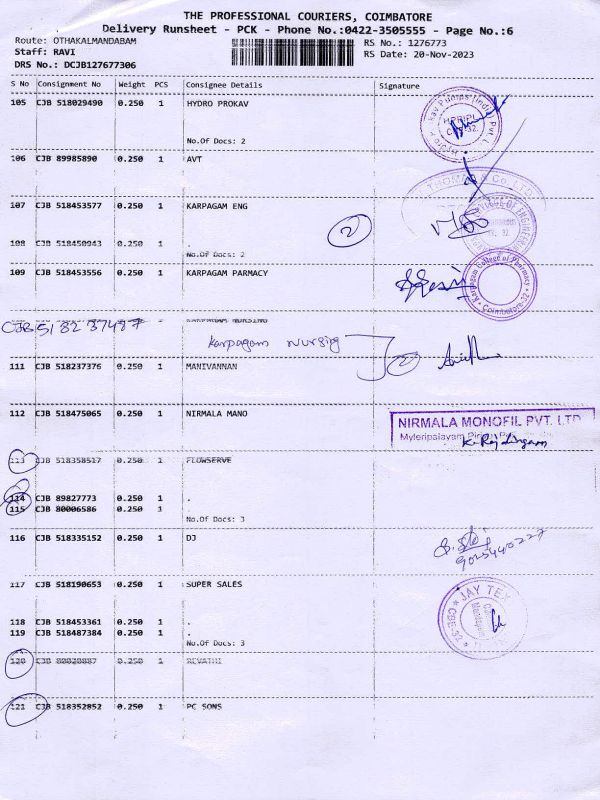 THE PROFESSIONAL COURIERS, COIMBATORE
Delivery Runsheet - PCK - Phone No.:0422-3505555 - Page No.:6
Route: OTHAKALMANDABAM
RS No.: 1276773
Staff: RAVI
RS Date: 20-Nov-2023
DRS No.: DCJB127677306
S No Consignment No Weight PCS Consignee Details Signature
105 CJB 518029490 0.250 1 HYDRO PROKAV
No.Of Docs: 2
106 CJB 89985890 0.250 1 AVT
THOMAS & Co LTD
107 CJB 518453577 0.250 1 KARPAGAM ENG
2
108 CJB 518450943 0.250 1 .
No.Of Docs: 2
109 CJB 518453556 0.250 1 KARPAGAM PARMACY
Karpagam College of Pharmacy
Coimbatore-32
KARPAGAM NURSING
CJB 518237487
Karpagam Nursing
2
111 CJB 518237376 0.250 1 MANIVANNAN
112 CJB 518475065 0.250 1 NIRMALA MANO
NIRMALA MONOFIL PVT. LTD
Myleripalayam
113 CJB 518358517 0.250 1 FLOWSERVE
114 CJB 89827773 0.250 1 .
115 CJB 80006586 0.250 3 .
No.Of Docs: 3
116 CJB 518335152 0.250 1 DJ
117 CJB 518190653 0.250 1 SUPER SALES
JAY TEX
CBE-32
118 CJB 518453361 0.250 1 .
119 CJB 518487384 0.250 1 .
No.Of Docs: 3
120 CJB 80020887 0.250 1 REVATHI
121 CJB 518352852 0.250 1 PC SONS